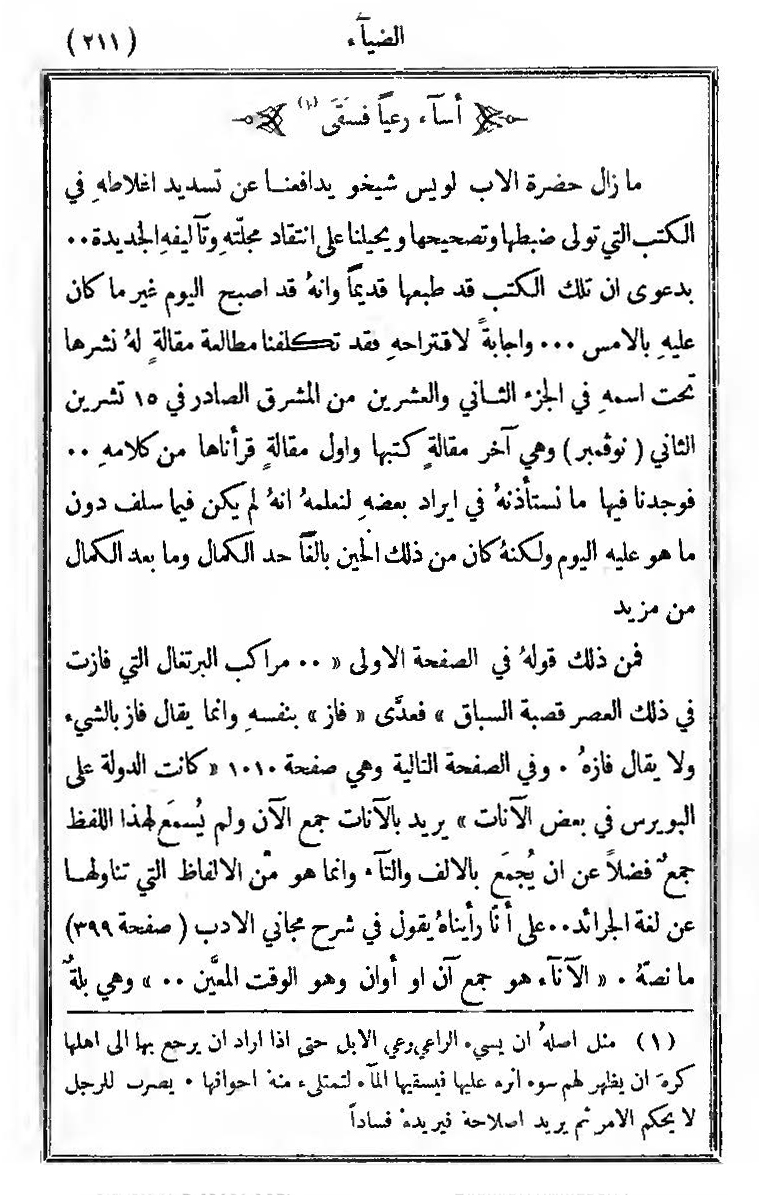 الضيآء
(٢١١)
أسآء رعياً فسَقَى (١)
ما زال حضرة الاب لويس شيخو يدافعنا عن تسديد اغلاطهِ في
الكتب التي تولى ضبطها وتصحيحها ويحيلنا على انتقاد مجلّتهِ وتآليفهِ الجديدة ٠٠
بدعوى ان تلك الكتب قد طبعها قديمًا وانهُ قد اصبح اليوم غير ما كان
عليهِ بالامس ٠٠٠ واجابةً لاقتراحهِ فقد تكلفنا مطالعة مقالةٍ لهُ نشرها
تحت اسمهِ في الجزء الثاني والعشرين من المشرق الصادر في ١٥ تشرين
الثاني ( نوڤمبر ) وهي آخر مقالةٍ كتبها واول مقالةٍ قرأناها من كلامهِ ٠٠
فوجدنا فيها ما نستأذنهُ في ايراد بعضهِ لنعلمهُ انهُ لم يكن فيما سلف دون
ما هو عليه اليوم ولكنهُ كان من ذلك الحين بالغًا حد الكمال وما بعد الكمال
من مزيد
فمن ذلك قولهُ في الصفحة الاولى « ٠٠ مراكب البرتغال التي فازت
في ذلك العصر قصبة السباق » فعدَّى « فاز » بنفسهِ وانما يقال فاز بالشيء
ولا يقال فازهُ ٠ وفي الصفحة التالية وهي صفحة ١٠١٠ « كانت الدولة على
البويرس في بعض الآنات » يريد بالآنات جمع الآن ولم يُسمَع لهذا اللفظ
جمعٌ فضلاً عن ان يُجمَع بالالف والتآء وانما هو من الالفاظ التي تناولها
عن لغة الجرائد ٠٠ على أنّا رأيناهُ يقول في شرح مجاني الادب ( صفحة ٣٩٩)
ما نصّهُ ٠ « الآنآء هو جمع آن او أوان وهو الوقت المعيَّن ٠٠ » وهي بلةٌ
(١) مثل اصلهُ ان يسيء الراعي رعي الابل حتى اذا اراد ان يرجع بها الى اهلها
كره ان يظهر لهم سوء اثره عليها فيسقيها المآء لتمتلىء منهُ اجوافها ٠ يضرب للرجل
لا يحكم الامر ثم يريد اصلاحهُ فيزيدهُ فساداً